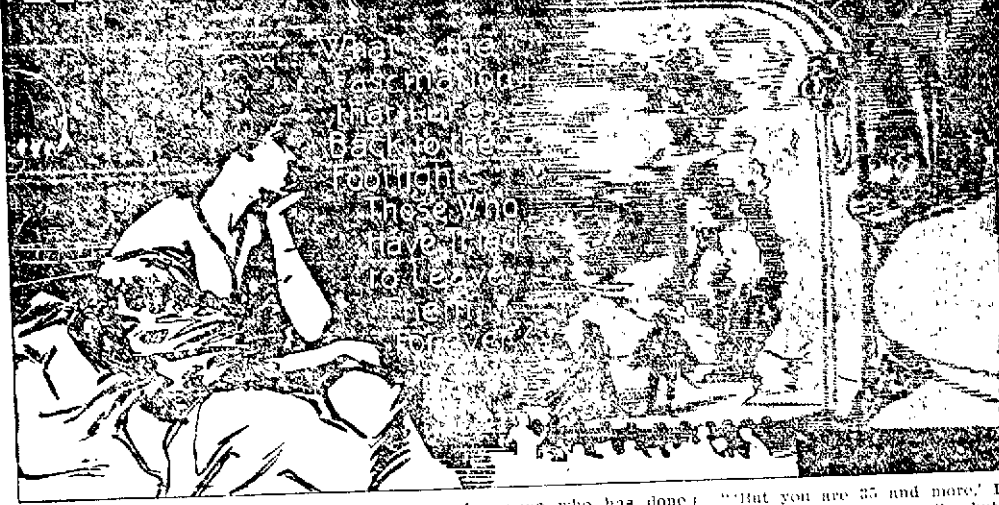 What is the
Fascination
That Lures
Back to the
Footlights
Those Who
Have Tried
To Leave
Them
Forever
who has done
"'But you are 35 and more,' I